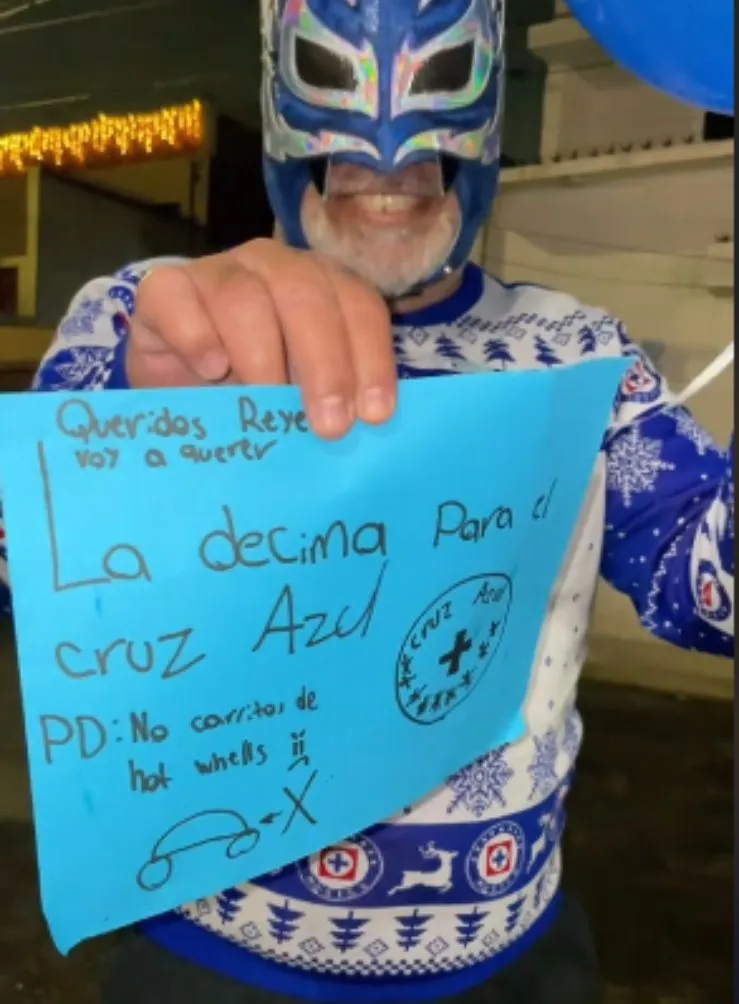 Queridos Reye
voy a querer
La decima Para el
cruz Azul
cruz Azul
PD: No carritos de
hot whells
X